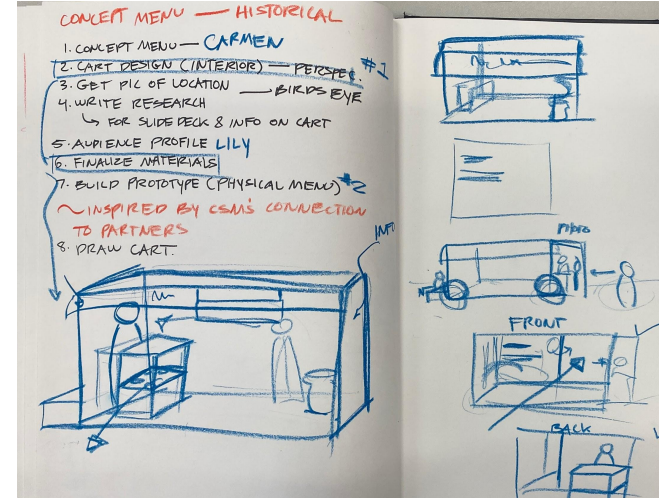 CONCEPT MENU — HISTORICAL
1. CONCEPT MENU — CARMEN
2. CART DESIGN (INTERIOR) — PERSPEC. #1
3. GET PIC OF LOCATION — BIRDS EYE
4. WRITE RESEARCH
↳ FOR SLIDE DECK & INFO ON CART
5. AUDIENCE PROFILE LILY
6. FINALIZE MATERIALS
7. BUILD PROTOTYPE (PHYSICAL MENU) #2
~ INSPIRED BY CSM'S CONNECTION
TO PARTNERS
8. DRAW CART.
INFO
FRONT
BACK